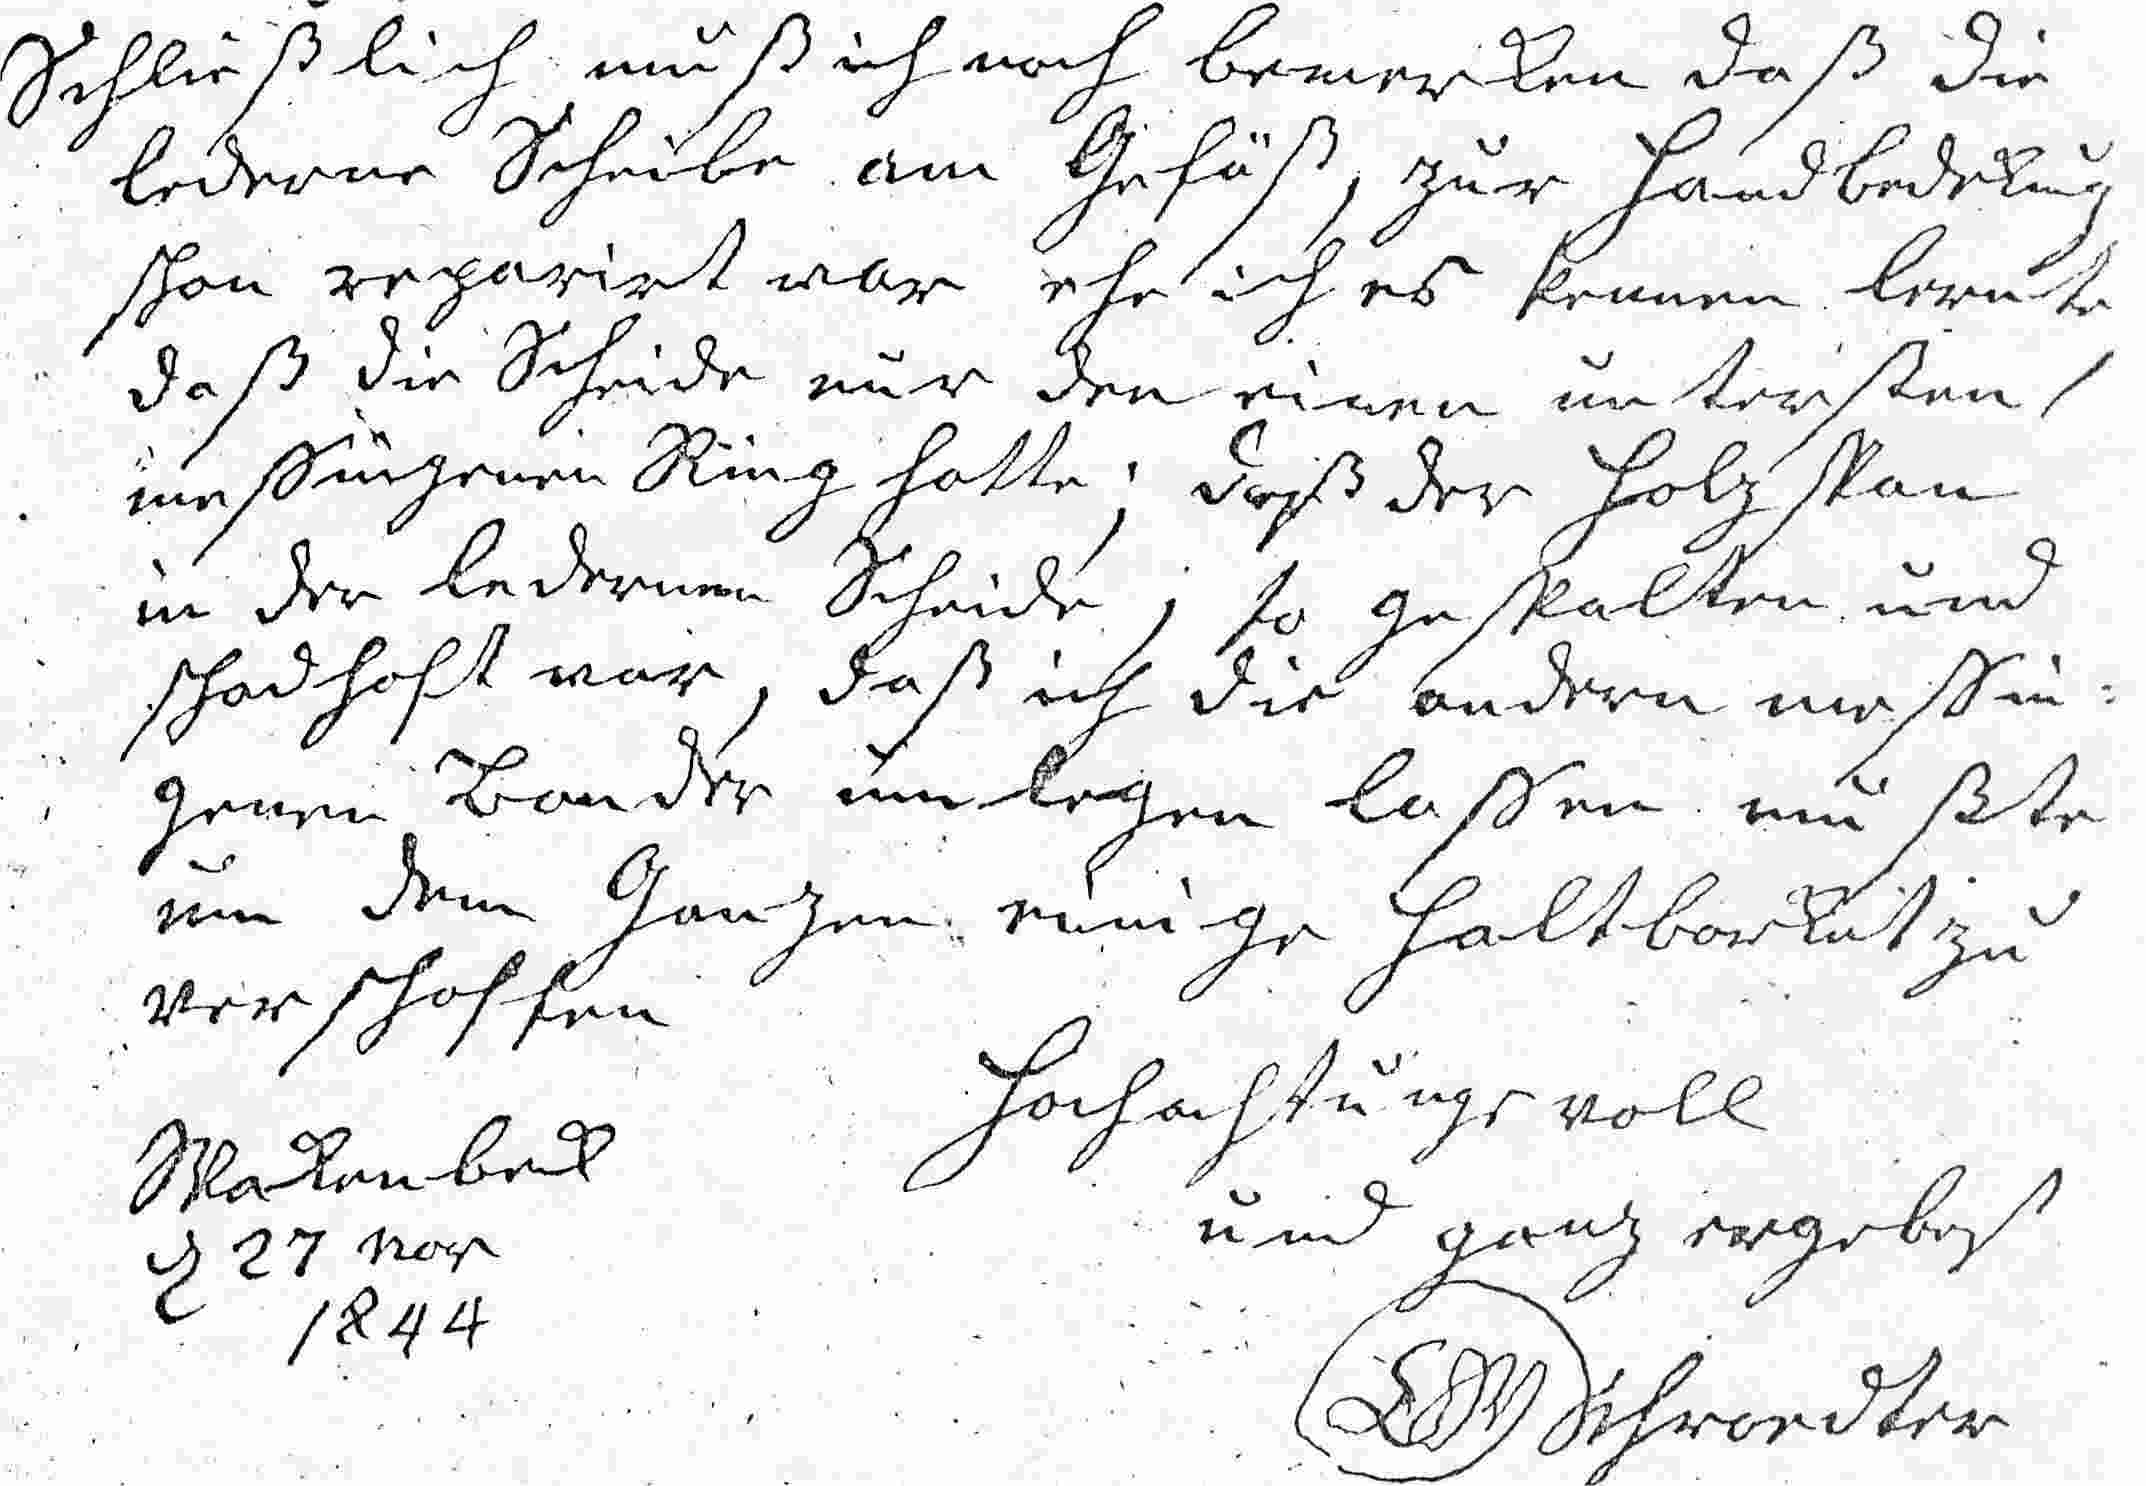 Schließlich muß ich noch bemerken daß die
lederne Scheibe am Gefäß, zur Handbedekung
schon reparirt war ehe ich es kennen lernte
daß die Scheide nur den einen untersten
messingenen Ring hatte; daß der Holzspan
in der ledernen Scheide, so gespalten und
schadhaft war, daß ich die andern messin-
genen Bander umlegen lassen mußte
um dem Ganzen einige Haltbarkeit zu
verschaffen
Hochachtungsvoll
und ganz ergebenst
Wakenbek
d 27 Nov
1844
Schroedter